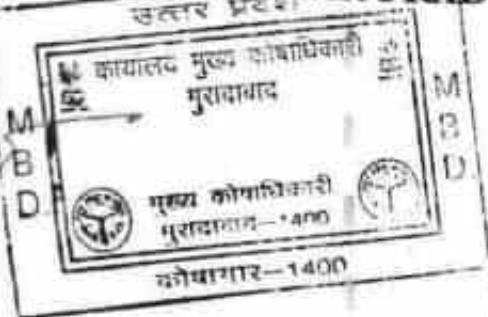 उत्तर प्रदेश
कार्यालय मुख्य कोषाधिकारी
मुरादाबाद
M
B
D
M
B
D
मुख्य कोषाधिकारी
मुरादाबाद-1400
कोषागार-1400